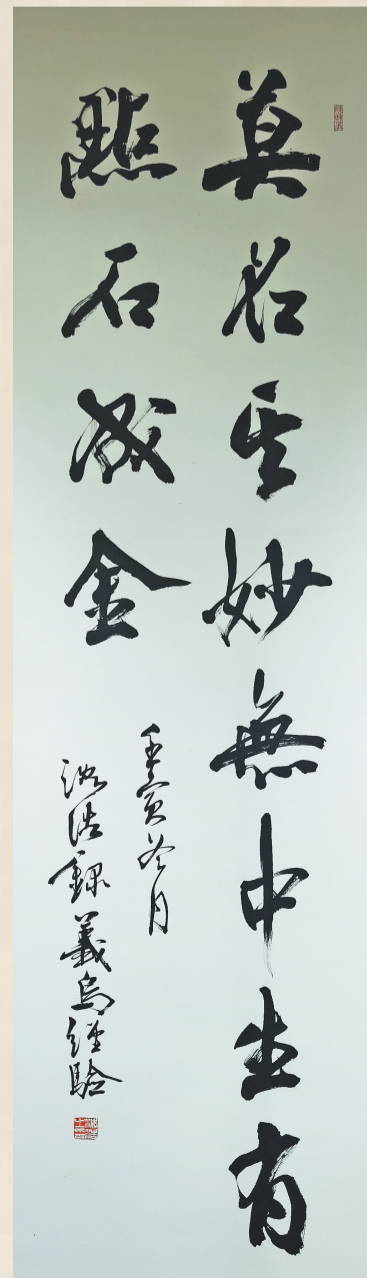 莫名其妙無中生有
點石成金
壬寅冬月
浩錄義烏經驗